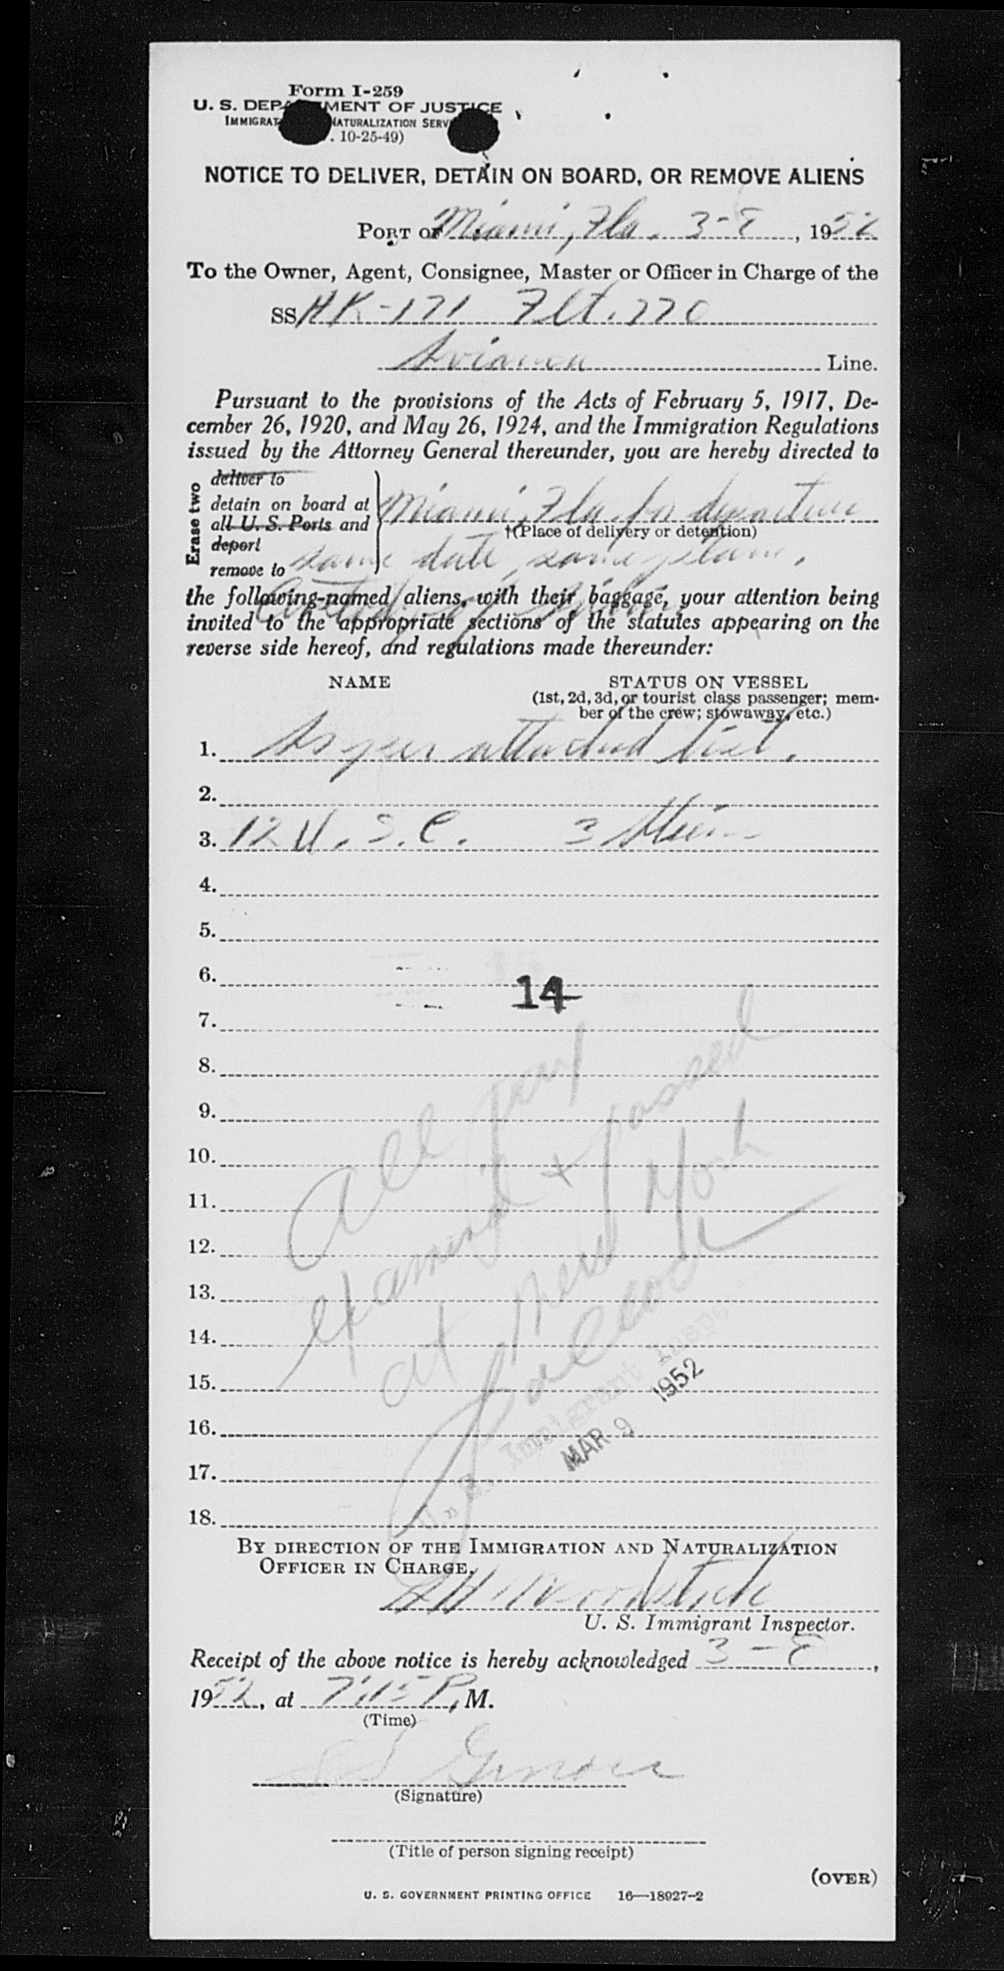 Form I-259
U. S. DEPARTMENT OF JUSTICE
IMMIGRATION NATURALIZATION SERV
. 10-25-49)
NOTICE TO DELIVER, DETAIN ON BOARD, OR REMOVE ALIENS
PORT OF Miami, Fla. 3-8, 1952
To the Owner, Agent, Consignee, Master or Officer in Charge of the
SS HK-171 Flt. 770
Avianca Line.
Pursuant to the provisions of the Acts of February 5, 1917, De-
cember 26, 1920, and May 26, 1924, and the Immigration Regulations
issued by the Attorney General thereunder, you are hereby directed to
Erase two
deliver to
detain on board at
all U. S. Ports and
deport
remove to
Miami, Fla. for departure
†(Place of delivery or detention)
same date, same plane.
the following-named aliens, with their baggage, your attention being
invited to the appropriate sections of the statutes appearing on the
reverse side hereof, and regulations made thereunder:
NAME STATUS ON VESSEL
(1st, 2d, 3d, or tourist class passenger; mem-
ber of the crew; stowaway, etc.)
1. As per attached list.
2.
3. 12 U. S. C. 3 Aliens
4.
5.
6.
14
7.
8.
9.
10.
11.
12.
13.
14.
15.
16.
17.
18.
All
examined & passed
at New York
U. S. Immigrant Insp
MAR 9 1952
BY DIRECTION OF THE IMMIGRATION AND NATURALIZATION
OFFICER IN CHARGE.
U. S. Immigrant Inspector.
Receipt of the above notice is hereby acknowledged 3-8,
1952, at 7:15 P. M.
(Time)
(Signature)
(Title of person signing receipt)
(OVER)
U. S. GOVERNMENT PRINTING OFFICE 16—18927-2